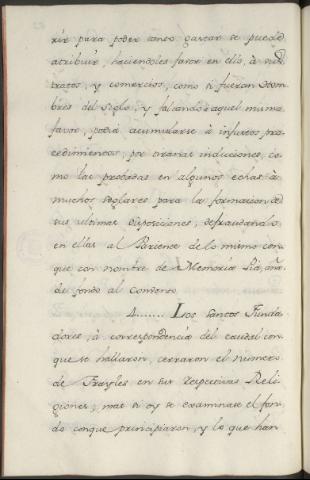 rir para poder tanto gastar se puede
atribuir, haciendoles favor en ello, à sus
tratos, y comercios, como si fueran Hom-
bres del Siglo: y faltando aquel mismo
favor, podia acumularse à injustos pro-
cedimientos, por tirarlas inducciones, co-
mo las probadas en algunos echas à
muchos Seglares para la formacion de
sus ultimas Disposiciones, defraudando
en ellas al Pariente de lo mismo con-
que con nombre de Memoria Pia, aña-
de fondo al Convento.
4....... Los Santos Funda-
dores, à correspondencia del caudal con-
que se hallaron, cerraron el numero
de Frayles en sus respectivas Reli-
giones; mas si oy se examinase el fon-
do conque principiaron, y lo que han